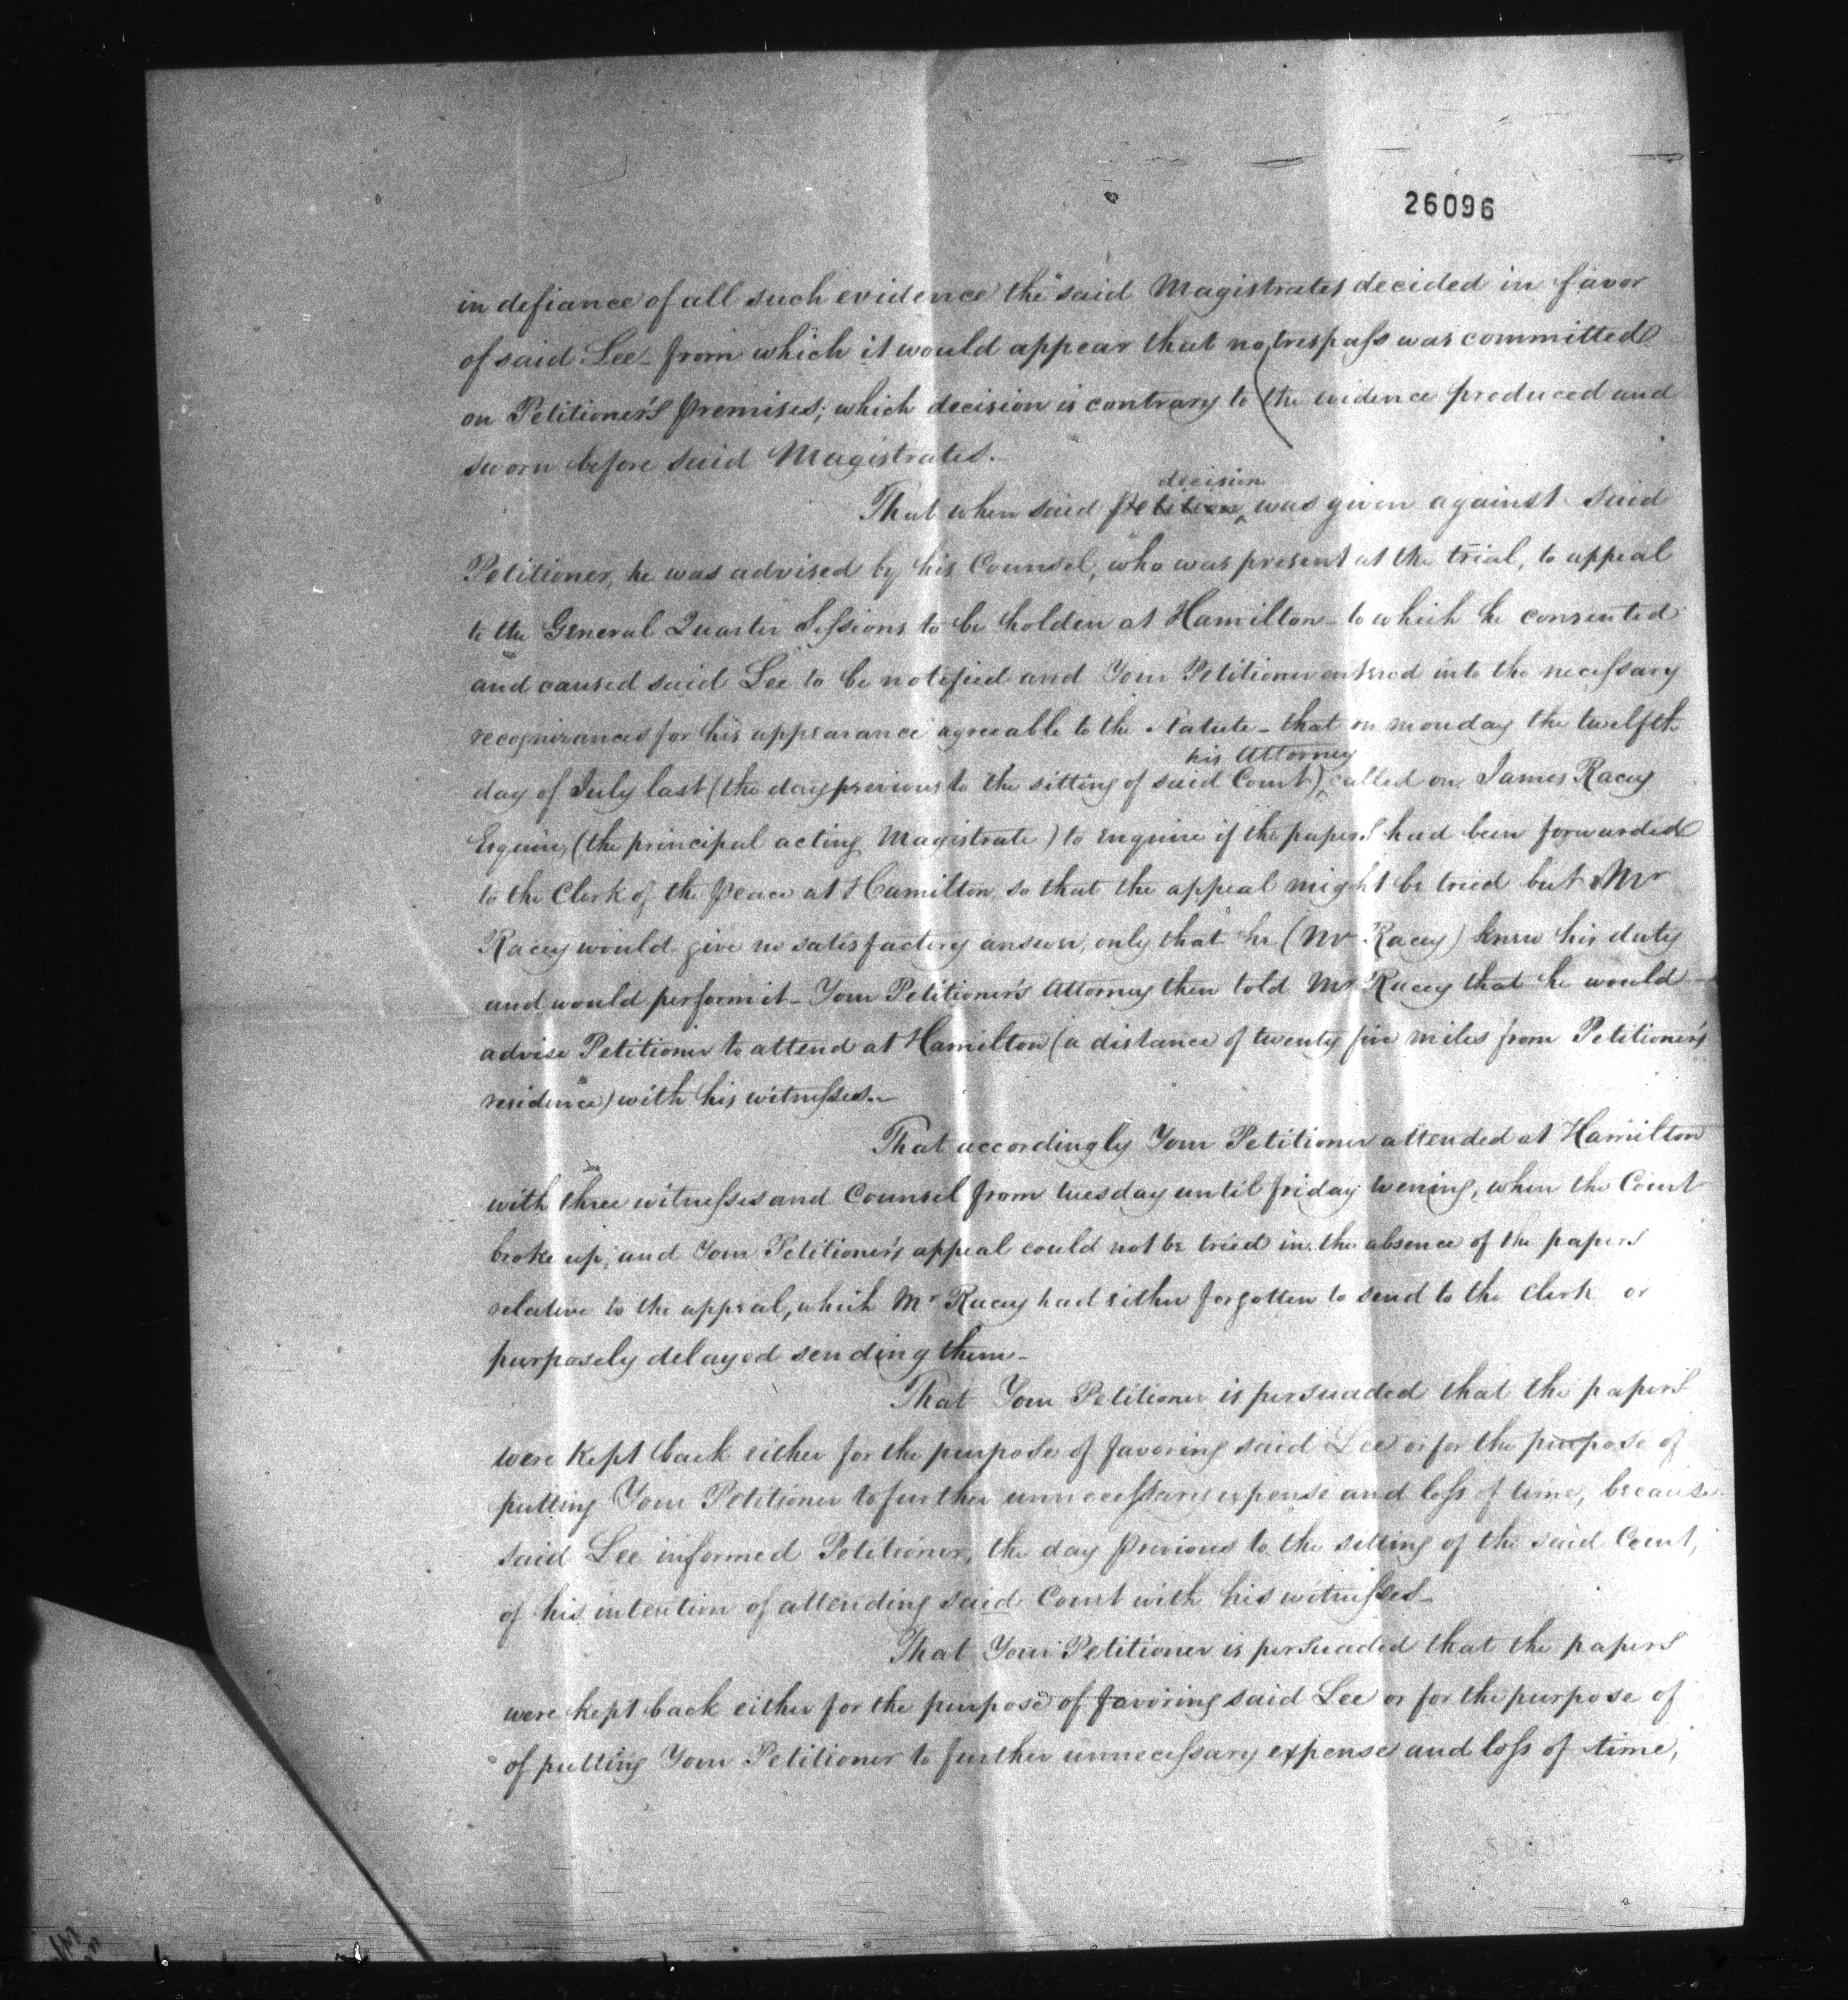 26096
in defiance of all such evidence the said Magistrates decided in favor
of said Lee - from which it would appear that no trespass was committed
on Petitioner's premises; which decision is contrary to the evidence produced and
sworn before said Magistrates.
decision
That when said petition was given against said
Petitioner, he was advised by his Counsel, who was present at the trial, to appeal
to the General Quarter Sessions to be holden at Hamilton - to which he consented
and caused said Lee to be notified and Your Petitioner entered into the necessary
recognizances for his appearance agreeable to the Statute - that on monday the twelfth
his Attorney
day of July last (the day previous to the sitting of said Court) called on James Racey
Esquire, (the principal acting Magistrate) to enquire if the papers had been forwarded
to the Clerk of the Peace at Hamilton so that the appeal might be tried but Mr
Racey would give no satisfactory answer, only that he (Mr Racey) knew his duty
and would perform it - Your Petitioner's Attorney then told Mr Racey that he would
advise Petitioner to attend at Hamilton (a distance of twenty five miles from Petitioner's
residence) with his witnesses. -
That accordingly Your Petitioner attended at Hamilton
with three witnesses and Counsel from tuesday until friday evening, when the Court
broke up, and Your Petitioner's appeal could not be tried in the absence of the papers
relative to the appeal, which Mr Racey had either forgotten to send to the Clerk or
purposely delayed sending them -
That Your Petitioner is persuaded that the papers
were kept back either for the purpose of favoring said Lee or for the purpose of
putting Your Petitioner to further unnecessary expense and loss of time, because
said Lee informed Petitioner, the day previous to the sitting of the said Court,
of his intention of attending said Court with his witnesses -
That Your Petitioner is persuaded that the papers
were kept back either for the purpose of favoring said Lee or for the purpose of
of putting Your Petitioner to further unnecessary expense and loss of time,